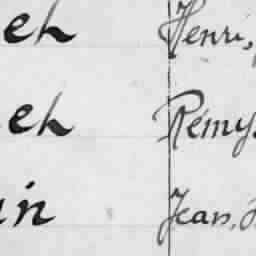 eh Henri,
eh Rémy.
in Jean,